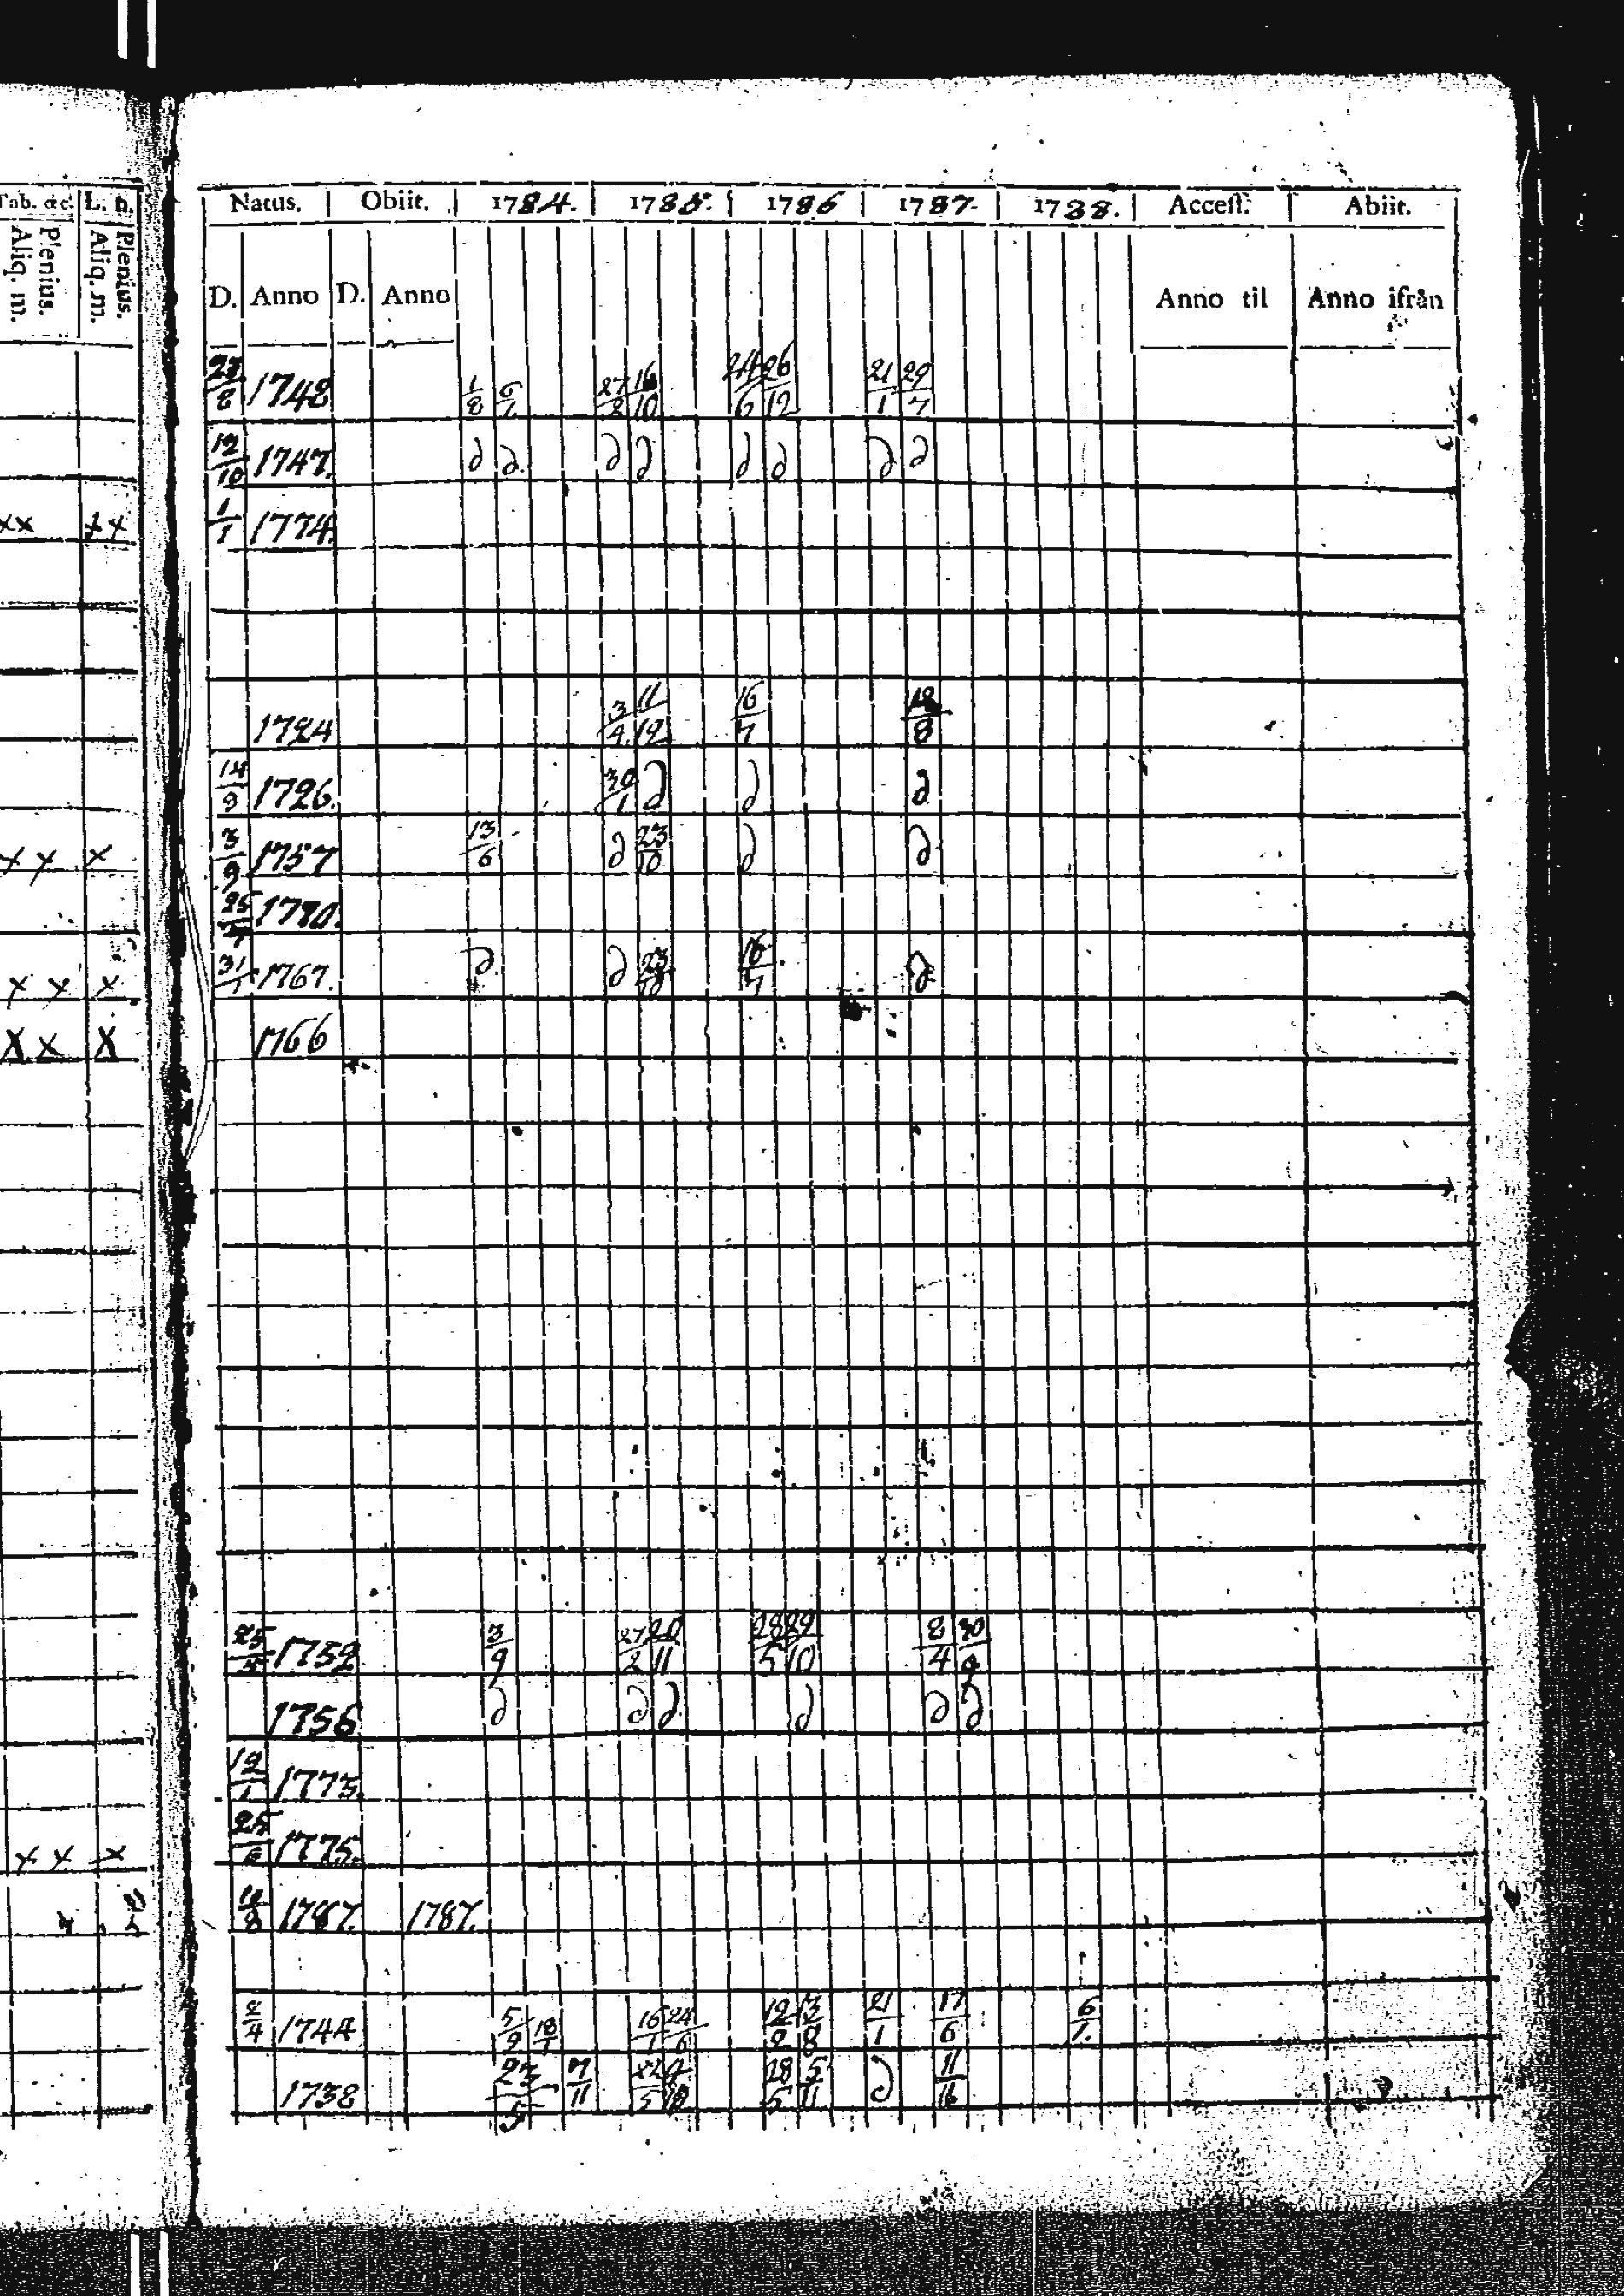 Tab. &c. L. h. Natus. Obiit. 1784. 1785. 1786 1787. 1788. Access. Abiit.
Aliq. m. Plenius. Aliq. m. Plenius. D. Anno D. Anno Anno til Anno ifrån
1748 1/8 27/2 16/10 24/6 26/12 21/1 29/7
12/10 1747. д д. д д д д д д
xx xx 1/1 1774.
1724 3/4. 11/12 16/7 18/8
14/9 1726. 30/1 д д д
x x x 3/9 1757 13/6 д 23/10 д д
25/7 1780.
x x x 31/1 1767. д. д 23/10 16/7 д
X x X 1766
25/4 1752 3/9 27/2 20/11 28/5 29/10 8/4 30/9
1756 д д д д д д
12/1 1773.
x x x 25/6 1775.
1787. 1787.
2/4 1744 5/9 18/1 16/1 24/6 12/2 13/8 21/1 17/6 6/1.
1738 23/5 7/11 28/5 5/11 д 11/16